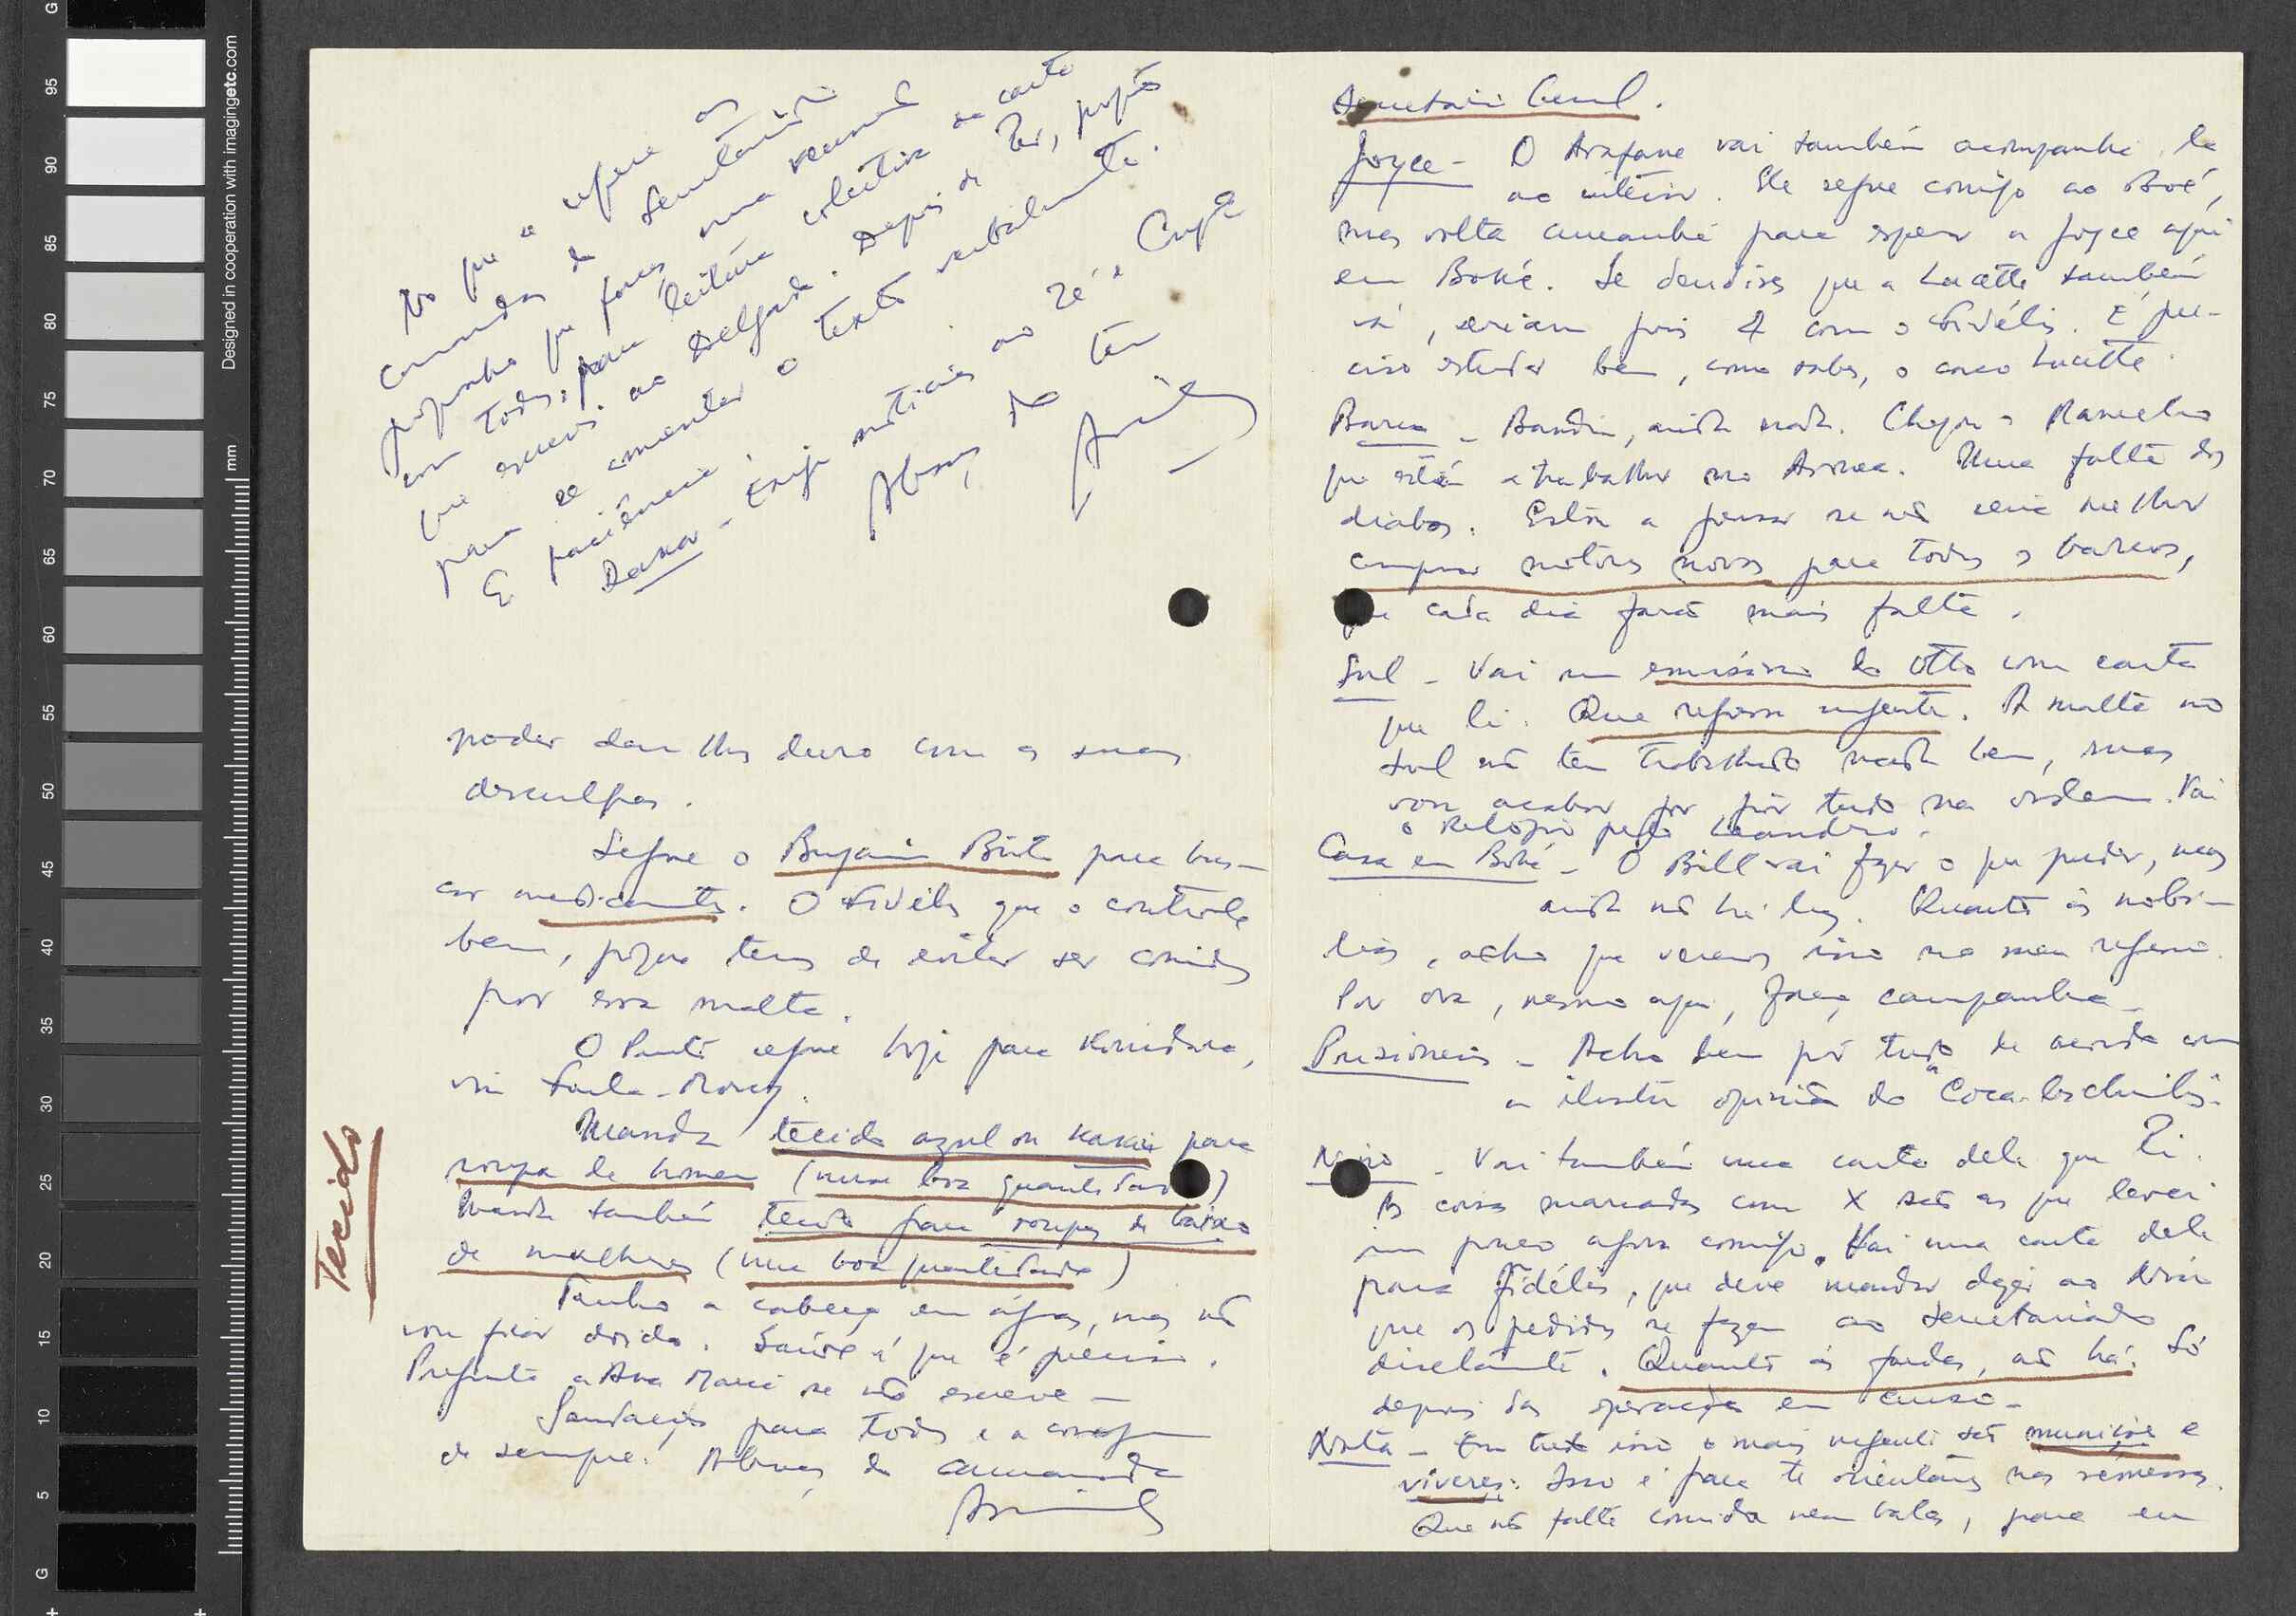 Joyce - O Arafane vai também acompanhá-la
ao interior. Ele segue comigo ao Boé,
mas volta amanhã para esperar a Joyce aqui
em Boké. Se decidires que a Lucette também
vá, seriam pois 4 com o Fidélis. É pre-
ciso estudar bem, como sabes, o caso Lucette.
Barco - Bandim, ainda nada. Chegou o
que está a trabalhar no Arouca. Uma falta dos
diabos. Estou a pensar se não seria melhor
comprar motores novos para todos os barcos,
que cada dia farão mais falta.
Sul - Vai um emissário do Otto com carta
que li. Que regresse urgente. A malta no
Sul não tem trabalhado nada bem, mas
vou acabar por pôr tudo na ordem. Vai
o relógio pelo Leandro.
Casa em Boké - O Bill vai fazer o que puder, mas
ainda não há luz. Quanto às mobí-
lias, acho que veremos isso no meu regresso.
Por ora, mesmo aqui, faço campanha -
Prisioneiros - Acho bem pôr tudo de acordo com
a ilustre opinião do
Nino - Vai também uma carta dele que li.
As coisas marcadas com X são as que levei
um pouco agora comigo. Vai uma carta dele
para Fidélis, que deve mandar dizer ao Nino
que os pedidos se fazem ao Secretariado
directamente. Quanto às fardas, não há. Só
depois das operações em curso -
Nota - Em tudo isso o mais urgente são munições e
víveres. Isso é para te orientares nas remessas.
Que não falte comida nem balas, para eu
poder dar-lhes duro com as suas
desculpas.
Segue o Benjamin Brito para bus-
car medicamentos. O Fidélis que o controle
bem, porque temos de evitar ser comidos
por essa malta.
O segue hoje para Koundara,
via Foula-Mory.
Manda tecido azul ou kaki para
roupa de homem (numa boa quantidade)
Manda também tecido para roupas de baixo
de mulheres (uma boa quantidade)
Tenho a cabeça em água, mas não
vou ficar doido. Saúde é que é preciso.
Pergunta a Ana Maria se não escreve -
Saudações para todos e a coragem
de sempre! Abraços do camarada
Tecido
No que se refere aos
camaradas do Secretariado
proponho que faças uma reunião
com todos, para leitura colectiva da carta
que escrevi ao Delgado. Depois de ler, proponho
para se comentar o texto verbalmente.
E paciência!
Dakar - Exijo notícias ao Zé
Abraços do teu